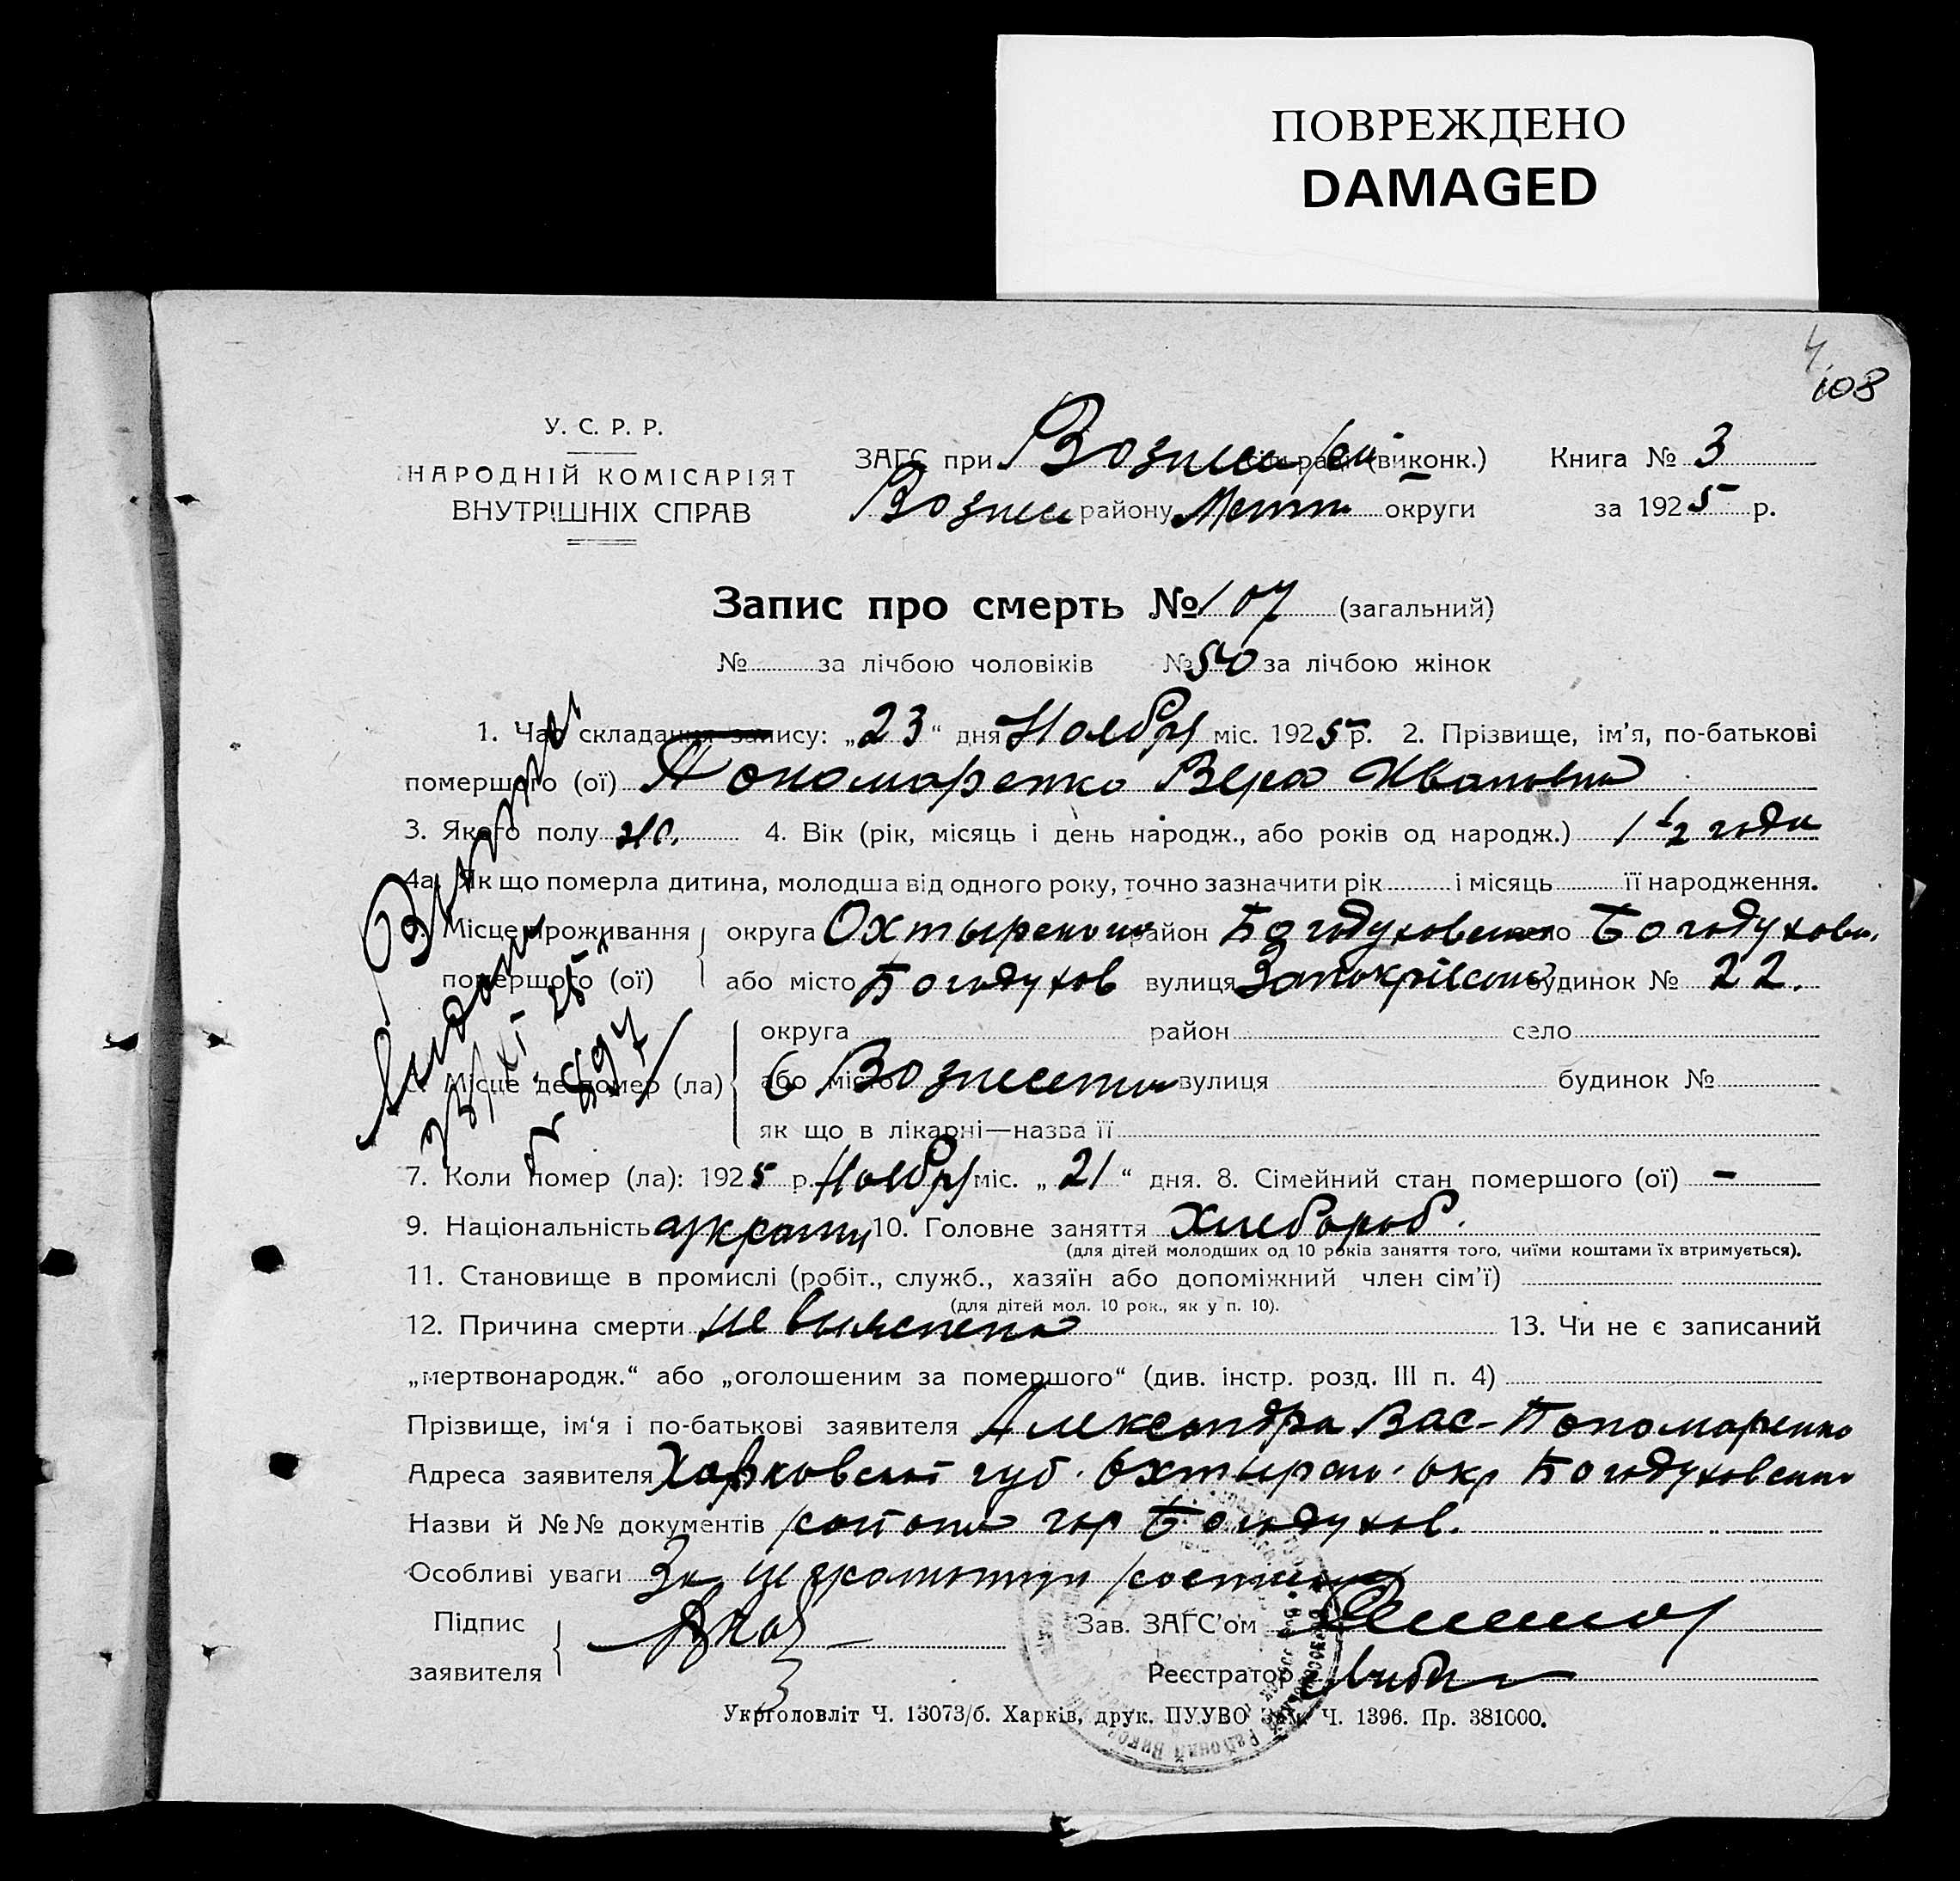 ПОВРЕЖДЕНО
DAMAGED
4
108
У. С. Р. Р.
НАРОДНІЙ КОМІСАРІЯТ
ВНУТРІШНІХ СПРАВ
ЗАГС при (виконк.) Книга № 3
району округи за 1925 р.
Запис про смерть № 107 (загальний)
№ за лічбою чоловіків № 50 за лічбою жінок
1. Час складання запису: „23“ дня Ноября міс. 1925 р. 2. Прізвище, ім'я, по-батькові
помершого (ої) Пономаренко Вера Ивановна
3. Якого полу ж. 4. Вік (рік, місяць і день народж., або років од народж.) 1 1/2 года
4а. Як що померла дитина, молодша від одного року, точно зазначити рік і місяць її народження.
Місце проживання округа район Богодуховском село Богодухов.
помершого (ої) або місто Богодухов вулиця будинок № 22.
округа район село
Місце де помер (ла) або місто вулиця будинок №
як що в лікарні—назва її
7. Коли помер (ла): 1925 р. Ноября міс. „21“ дня. 8. Сімейний стан помершого (ої) –
9. Національність 10. Головне заняття Хлебороб.
(для дітей молодших од 10 років заняття того, чиїми коштами їх втримується).
11. Становище в промислі (робіт., служб., хазяїн або допоміжний член сім'ї)
(для дітей мол. 10 рок., як у п. 10).
12. Причина смерти не выяснена 13. Чи не є записаний
„мертвонародж.“ або „оголошеним за помершого“ (див. інстр. розд. III п. 4)
Прізвище, ім'я і по-батькові заявителя Александра Вас– Пономаренко
Адреса заявителя Харковской губ. Охтырск. окр Богодуховского
Назви й №№ документів района гор Богодухов.
Особливі уваги За неграмотную
Підпис Зав. ЗАГС'ом
заявителя Реєстратор
Укрголовліт Ч. 13073/б. Харків, друк. ПУУВО Зам. Ч. 1396. Пр. 381000.